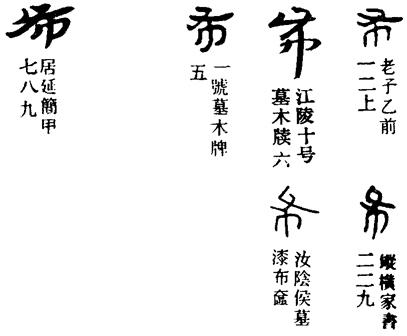 布
老子乙前
一二上
布
縱橫家書
二二九
布
江陵十号
墓木牍六
布
汝陰侯墓
漆布奩
布
一號墓木牌
五
布
居延簡甲
七八九